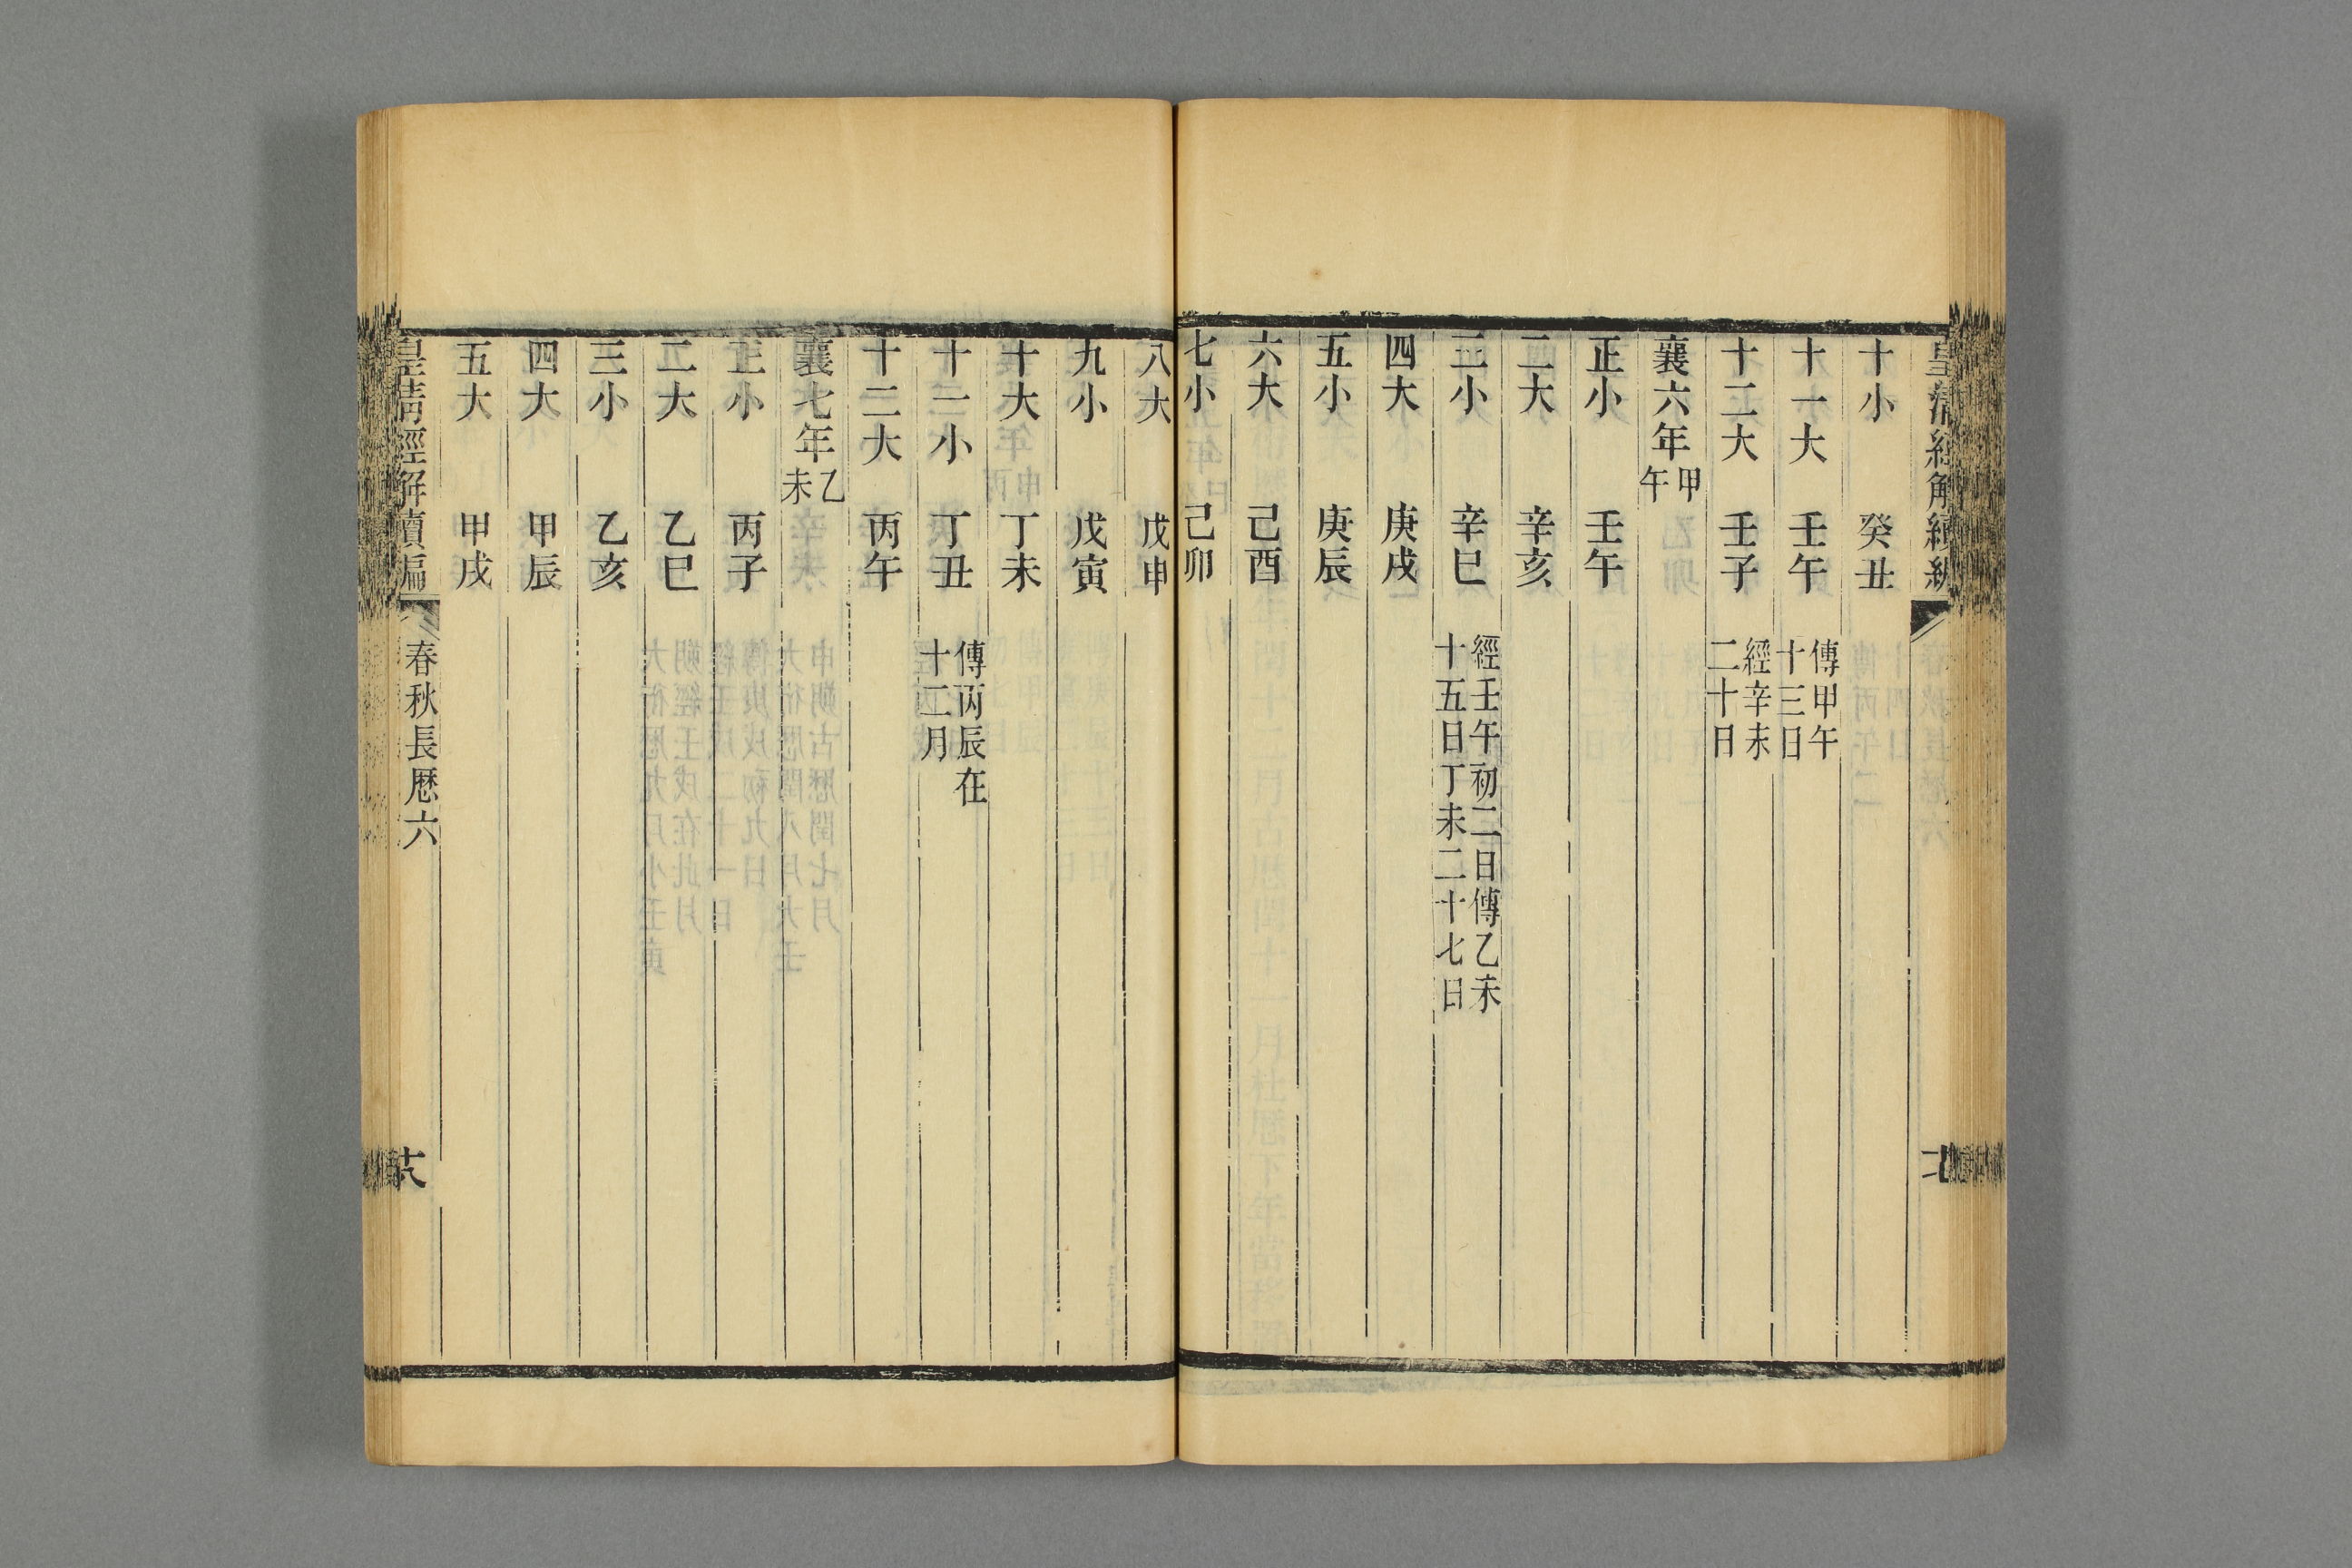 皇清經解續編
十小 癸丑
十一大 壬午 傳甲午
十三日
十二大 壬子 經辛未
二十日
襄六年 甲
午
正小 壬午
二大 辛亥
三小 辛巳 經壬午初二日傳乙未
十五日丁未二十七日
四大 庚戌
五小 庚辰
六大 己酉
七小 己卯
八大 戊申
九小 戊寅
十大 丁未
十一小 丁丑 傳丙辰在
十二月
十二大 丙午
襄七年 乙
未
正小 丙子
二大 乙巳
三小 乙亥
四大 甲辰
五大 甲戌
皇清經解續編 春秋長厯六 十八